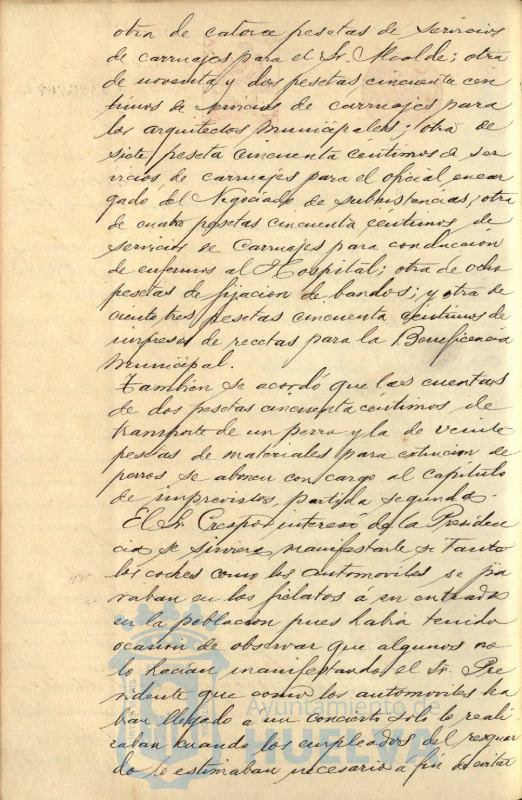 otra de catorce pesetas de servicios
de carruajes para el Sr. Alcalde; otra
de noventa y dos pesetas cincuenta cen
timos de servicios de carruajes para
los arquitectos municipales; otra de
siete peseta cincuenta centimos de ser
vicios de carruajes para el oficial encar
gado del Negociado de subsistencias; otra
de cuatro pesetas cincuenta centimos de
servicios de Carruajes para conduccion
de enfermos al Hospital; otra de ocho
pesetas de fijacion de bandos; y otra de
ciento tres pesetas cincuenta centimos de
impresos de recetas para la Beneficencia
Municipal.
Tambien se acordó que las cuentas
de dos pesetas cincuenta centimos de
transporte de un perro y la de veinte
pesetas de materiales para extincion de
perros se abonen con cargo al capitulo
de imprevistos partida segunda.
El Sr. Crespo interesó de la Presiden
cia se sirviera manifestarle si tanto
los coches como los automoviles se pa
raban en los fielatos á su entrada
en la poblacion pues habia tenido
ocasion de observar que algunos no
lo hacian manifestando el Sr. Pre
sidente que como los automoviles ha
bian llegado a un concierto solo lo reali
zaban cuando los empleados del resguar
do lo estimaban necesario a fin de evitar
Ayuntamiento de
HUELVA